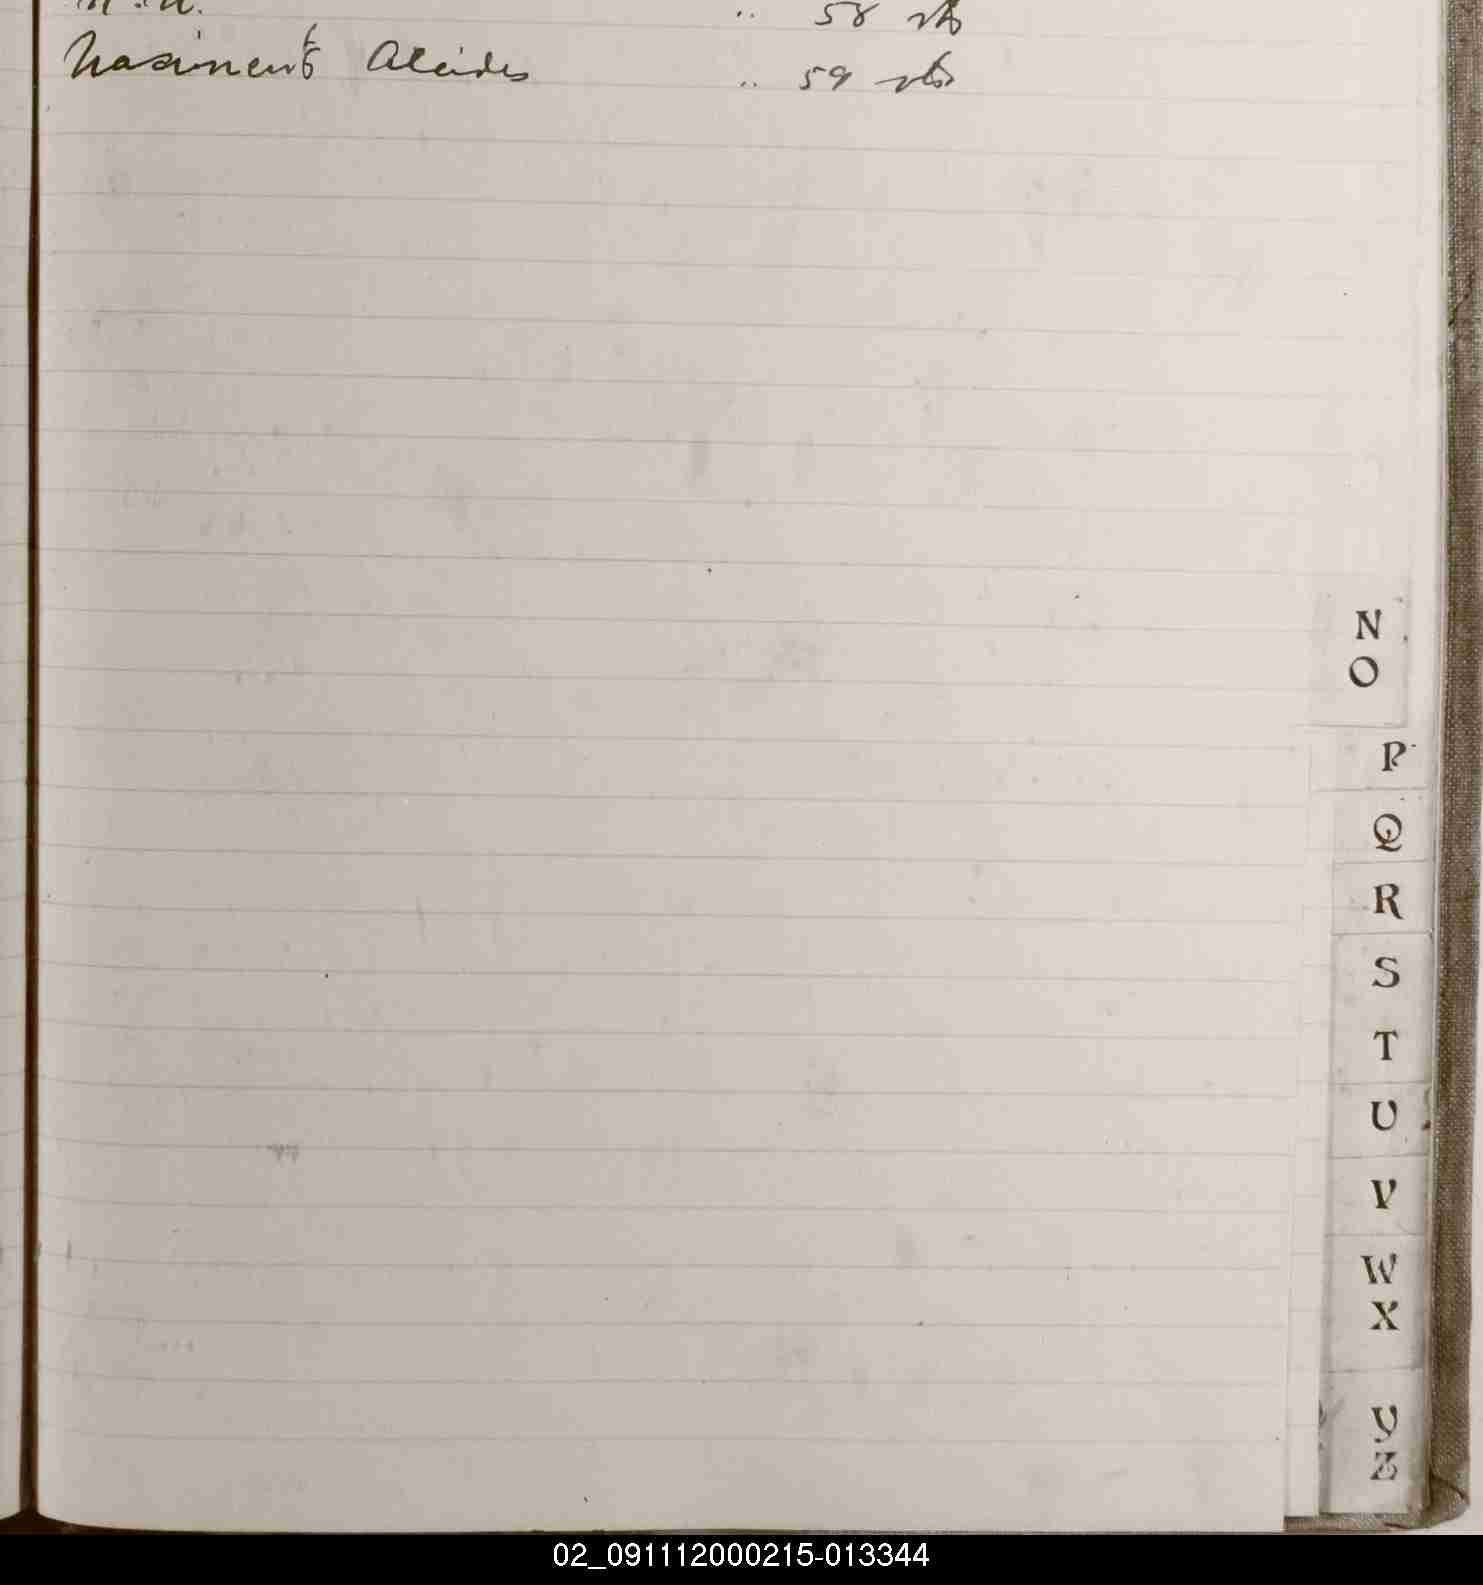 " 58 vto
Nasimento Alcides " 59 vto
N
O
P
Q
R
S
T
U
V
W
X
Y
Z
02_091112000215-013344